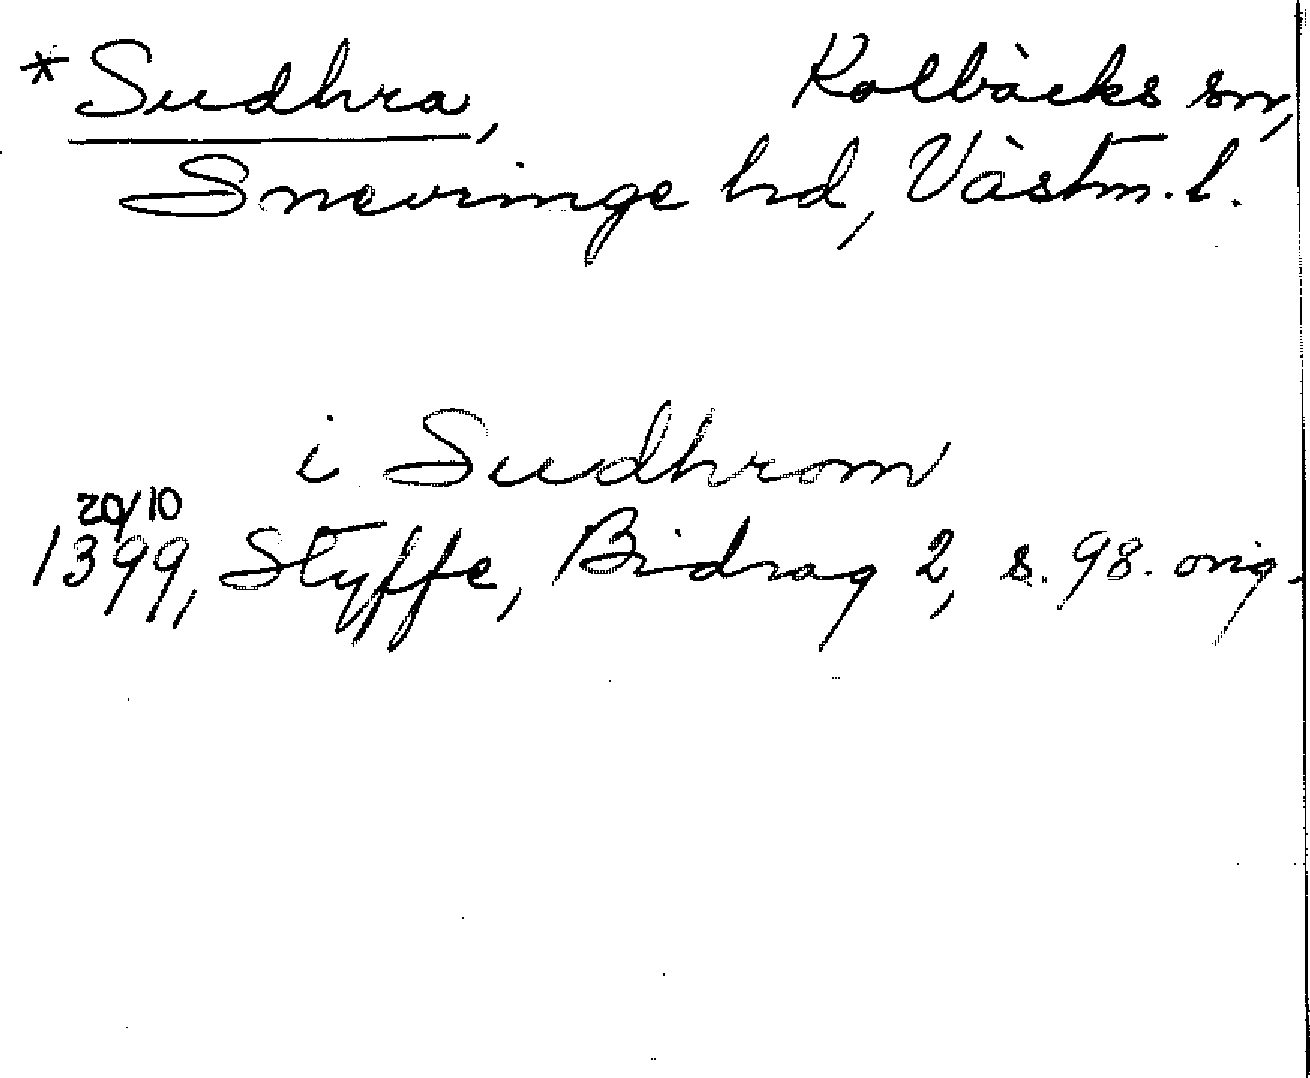 *Sudhra, Kolbäcks sn,
Snevringe hd, Västm. l.
i Sudhrom
20/10
1399, Styffe, Bidrag 2, s. 98. orig.